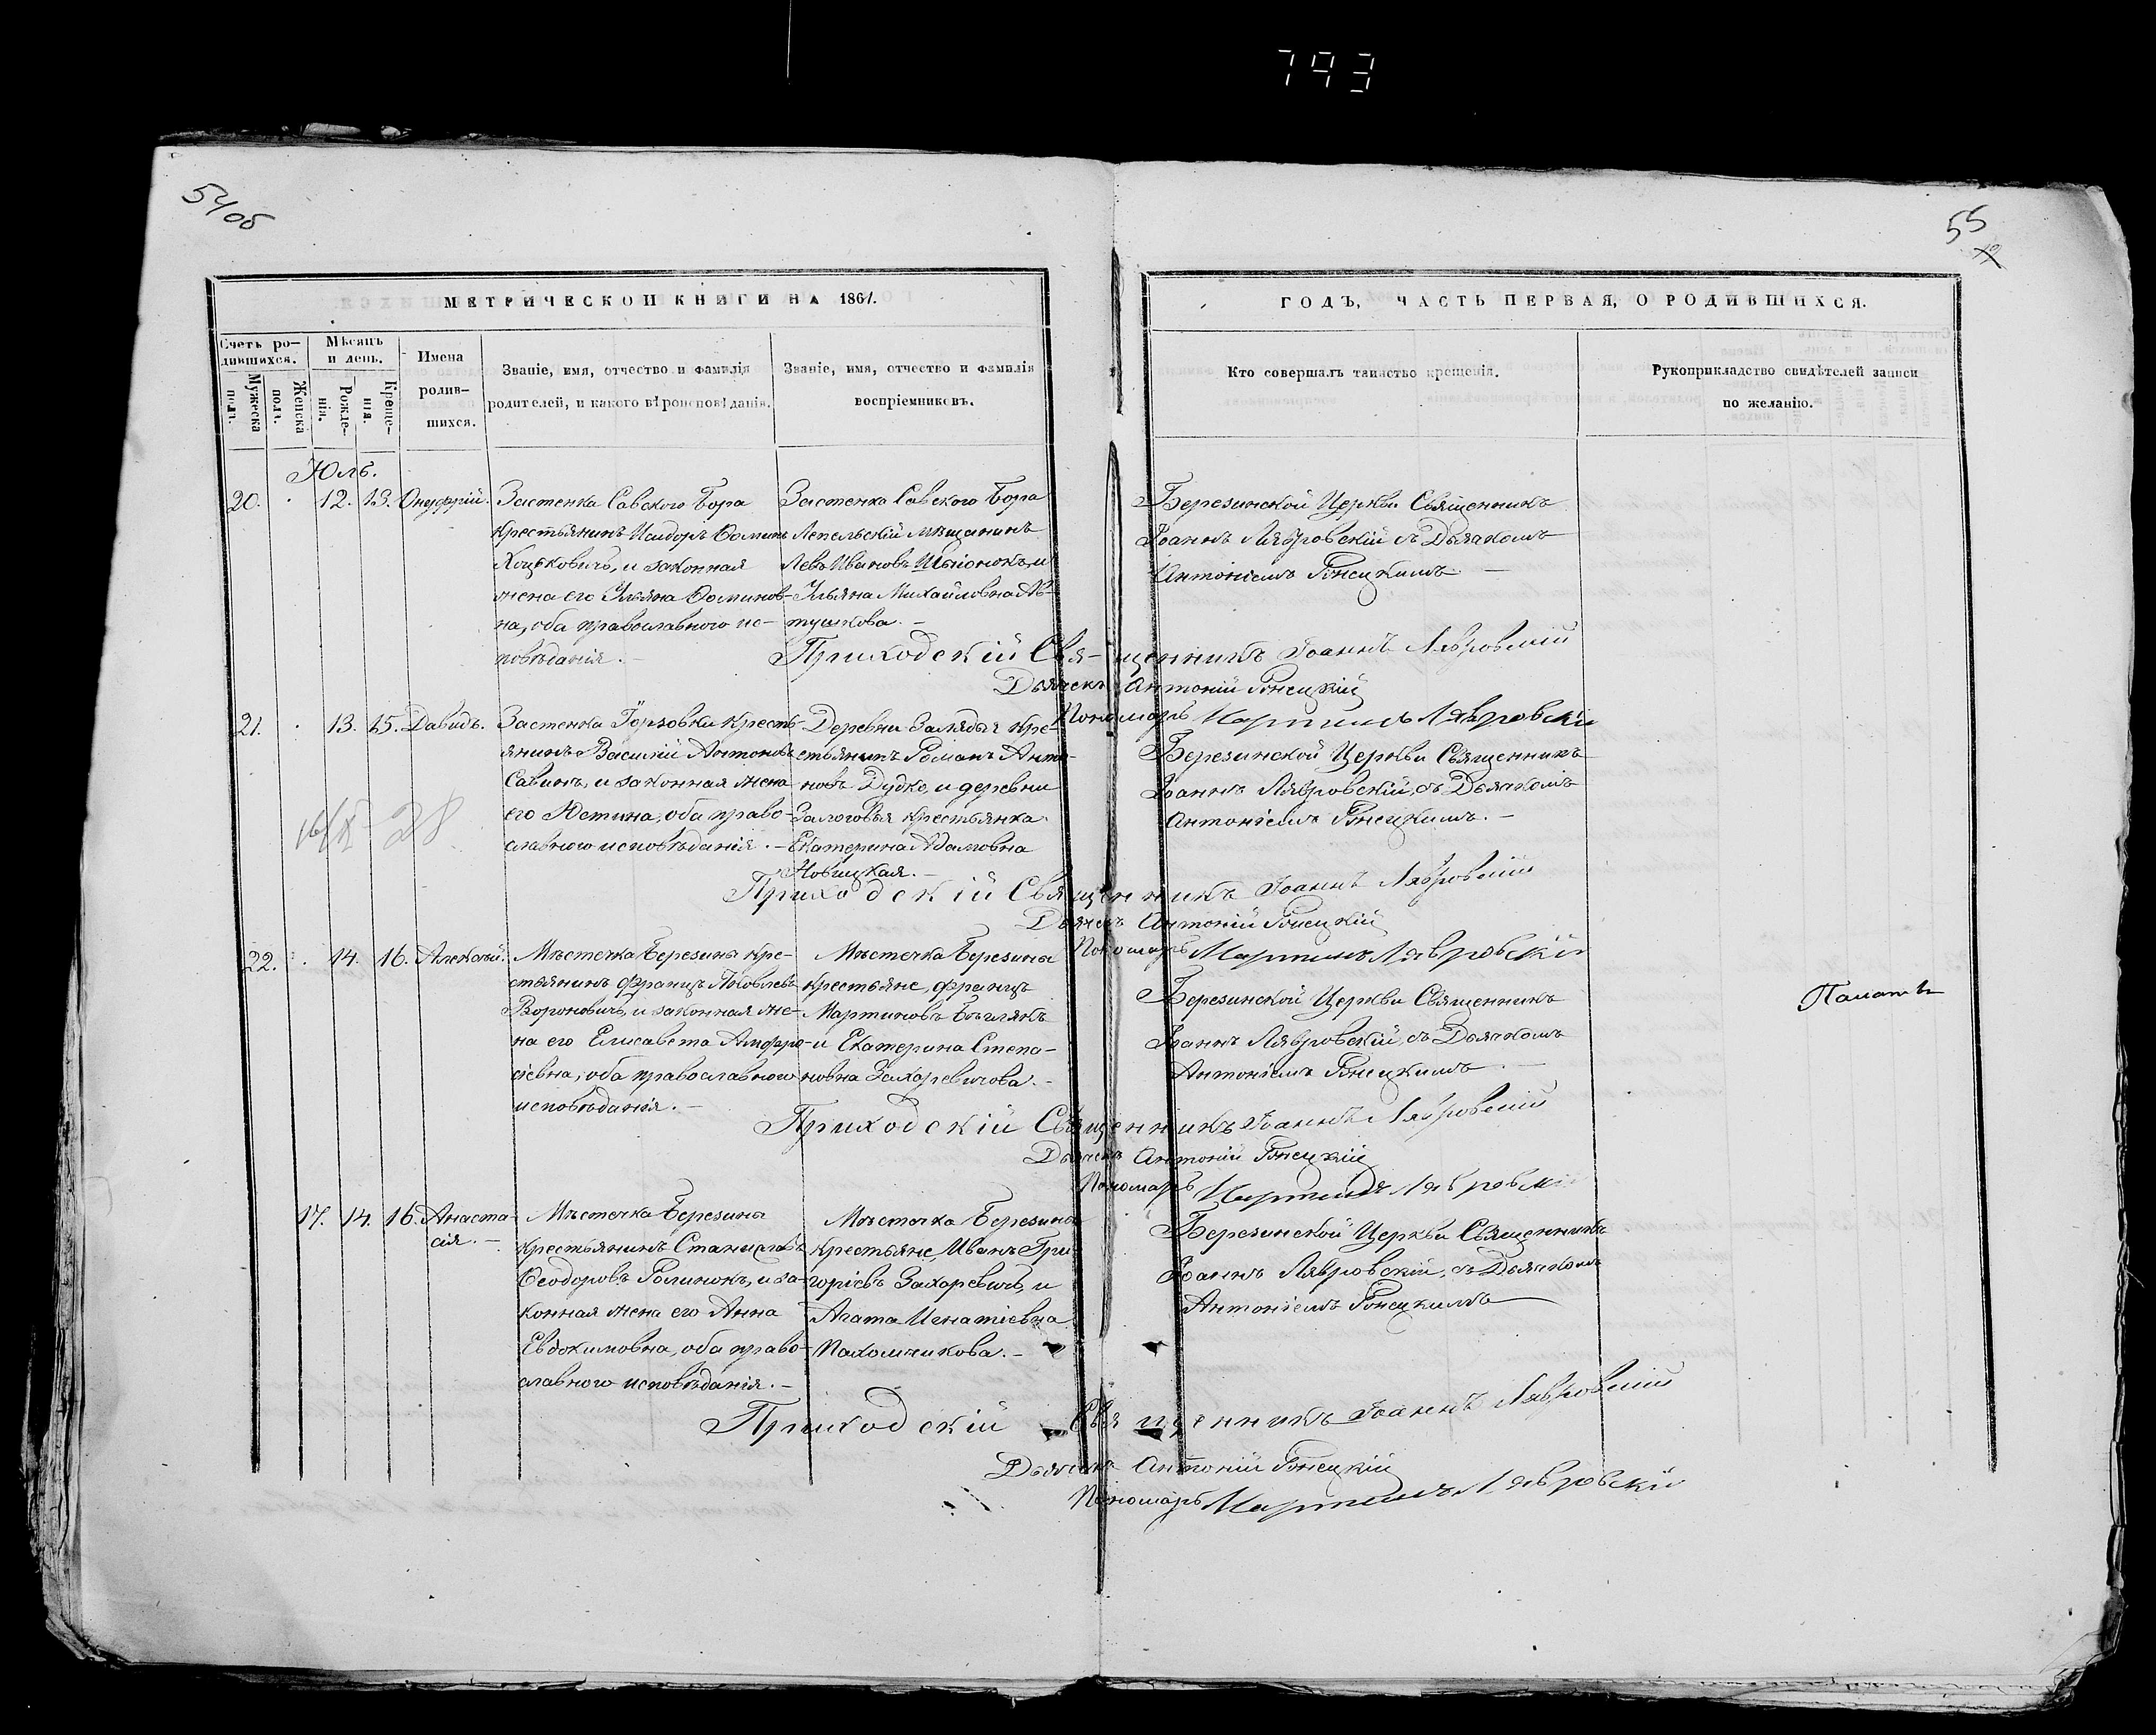 793
54об
55
МЕТРИЧЕСКОЙ КНИГИ НА 1861.
ГОДЪ, ЧАСТЬ ПЕРВАЯ, О РОДИВШИХСЯ.
Счетъ ро-
дившихся.
Мужеска
полъ.
Женска
полъ.
Мѣсяцъ
и день.
Рожде-
нія.
Креще-
нія.
Имена
родив-
шихся.
Званіе, имя, отчество и фамилія
родителей, и какого вѣроисповѣданія.
Званіе, имя, отчество и фамилія
воспріемниковъ.
Кто совершалъ таинство крещенія.
Рукоприкладство свидѣтелей записи
по желанію.
Юль.
20. 12. 13. Онуфрій.
Застенка Савского Бора
крестьянинъ Исидоръ Ѳомин
Хоцьковичъ, и законная
жена его Ульяна Ѳоминов-
на, оба православного ис-
повѣданія.
Застенка Савского Бора
Лепельскій мѣщанинъ
Левъ Ивановъ и
Ульяна Михайловна
Березинской Церкви Священникъ
Іоаннъ Лявровскій съ Дьячкомъ
Антоніемъ Гонецкимъ.
Приходскій Священникъ Іоаннъ Лявровскій
Дьячекъ Антоній Гонецкій
Пономарь Мартинъ Лявровскій
21. 13. 15. Давидъ.
Застенка кресть-
янинъ Василій Антоновъ
Савинъ, и законная жена
его Юстина, оба право-
славного исповѣданія.
Деревни Залядья кре-
стьянинъ Романъ Анто-
новъ Дудко, и деревни
Залоговья крестьянка
Екатерина Адамовна
Новицкая.
28
Березинской Церкви Священникъ
Іоаннъ Лявровскій, съ Дьячкомъ
Антоніемъ Гонецкимъ.
Приходскій Священникъ Іоаннъ Лявровскій
Дьячекъ Антоній Гонецкій
Пономарь Мартинъ Лявровскій
22. 14. 16. Алексѣй.
Мѣстечка Березины кре-
стьянинъ Францъ Яковлевъ
Вороновичъ, и законная же-
на его Елисавета Амфро-
сіевна, оба православного
исповѣданія.
Мѣстечка Березины
крестьяне, Францъ
Мартиновъ
и Екатерина Степа-
новна Захаревичова.
Березинской Церкви Священникъ
Іоаннъ Лявровскій, съ Дьячкомъ
Антоніемъ Гонецкимъ.
Приходскій Священникъ Іоаннъ Лявровскій
Дьячекъ Антоній Гонецкій
Пономарь Мартинъ Лявровскій
17. 14. 16. Анаста-
сія.
Мѣстечка Березины
крестьянинъ Станиславъ
Ѳеодоровъ и за-
конная жена его Анна
Евдокимовна, оба право-
славного исповѣданія.
Мѣстечка Березины
крестьяне, Иванъ Гри-
горіевъ Захаревичъ, и
Агата Игнатіевна
Пахомчикова.
Березинской Церкви Священникъ
Іоаннъ Лявровскій, съ Дьячкомъ
Антоніемъ Гонецкимъ
Приходскій Священникъ Іоаннъ Лявровскій
Дьячекъ Антоній Гонецкій
Пономарь Мартинъ Лявровскій